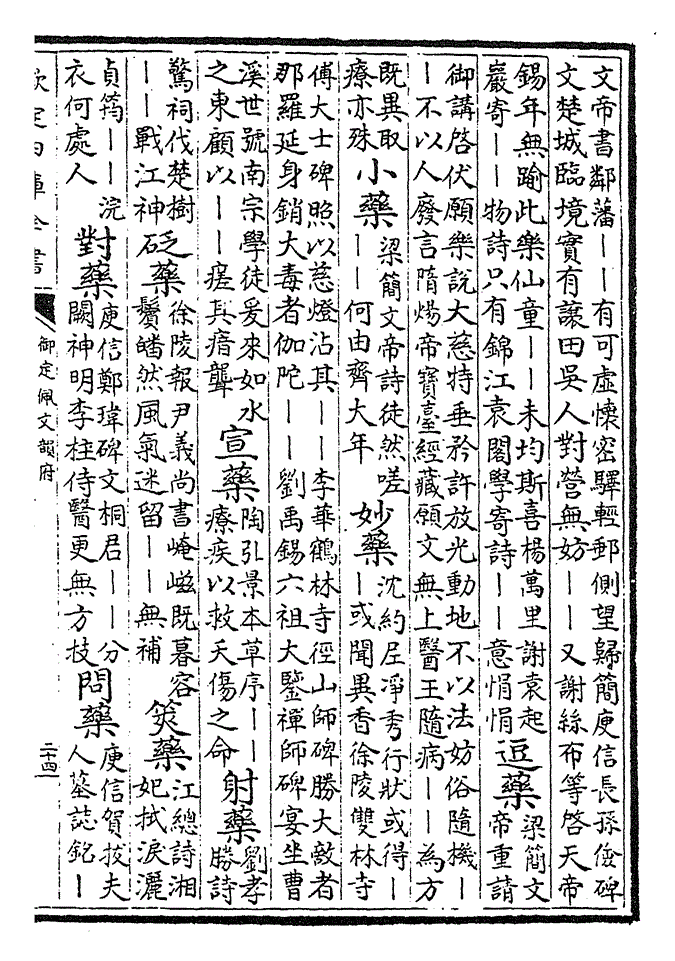 文帝書鄰藩——有可虛懷密驛輕郵側望歸簡庾信長孫儉碑
文楚城臨境實有讓田吳人對營無妨——又謝絲布等啓天帝
錫年無踰此樂仙童——未均斯喜楊萬里謝袁起
巖寄——物詩只有錦江袁閣學寄詩——意悁悁
逗藥
梁簡文
帝重請
御講啓伏願樂說大慈特垂矜許放光動地不以法妨俗隨機—
—不以人廢言隋煬帝寶臺經藏願文無上醫王隨病——為方
既異取
療亦殊
小藥
梁簡文帝詩徒然嗟
——何由齊大年
妙藥
沈約尼淨秀行狀或得—
—或聞異香徐陵雙林寺
傅大士碑照以慈燈沾其——李華鶴林寺徑山師碑勝大敵者
那羅延身銷大毒者伽陀——劉禹錫六祖大鑒禪師碑宴坐曹
溪世號南宗學徒爰來如水
之東顧以——瘥其瘖聾
宣藥
陶引景本草序——
療疾以救夭傷之命
射藥
劉孝
勝詩
驚祠伐楚樹
——戰江神
砭藥
徐陵報尹義尚書崦嵫既暮容
鬢皤然風氣迷留——無補
筴藥
江總詩湘
妃拭淚灑
貞筠——浣
衣何處人
對藥
庾信鄭瑋碑文桐君——分
闕神明李柱侍醫更無方技
問藥
庾信賀拔夫
人墓誌銘—
欽定四庫全書
御定佩文韻府
二十四